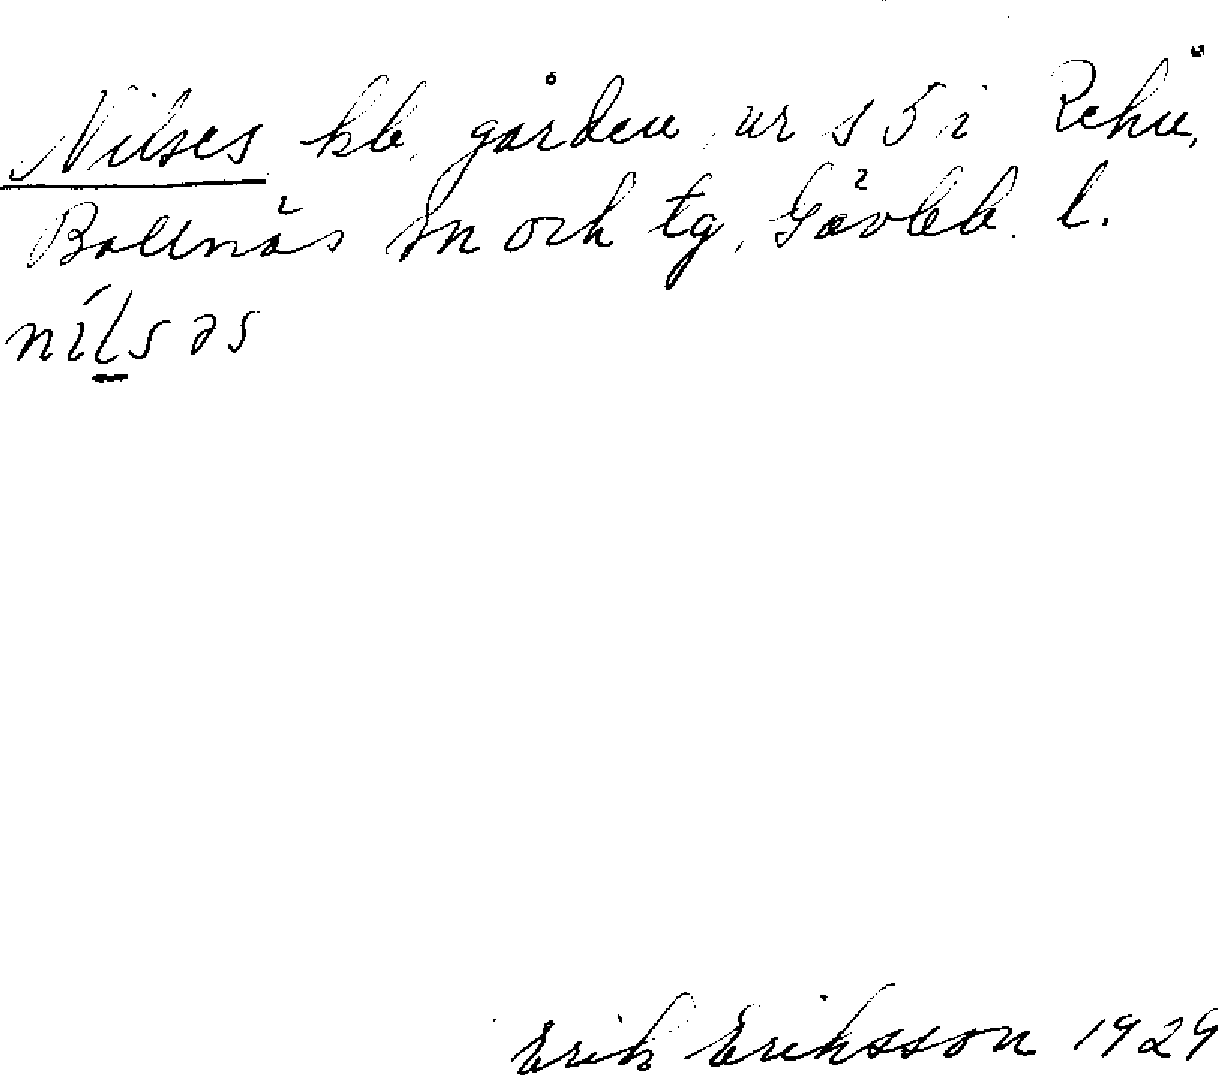 Nilses kb. gården nr 5 i Rehn,
Bollnäs sn och tg, Gävleb. l.
nílsəs
Erik Eriksson 1929